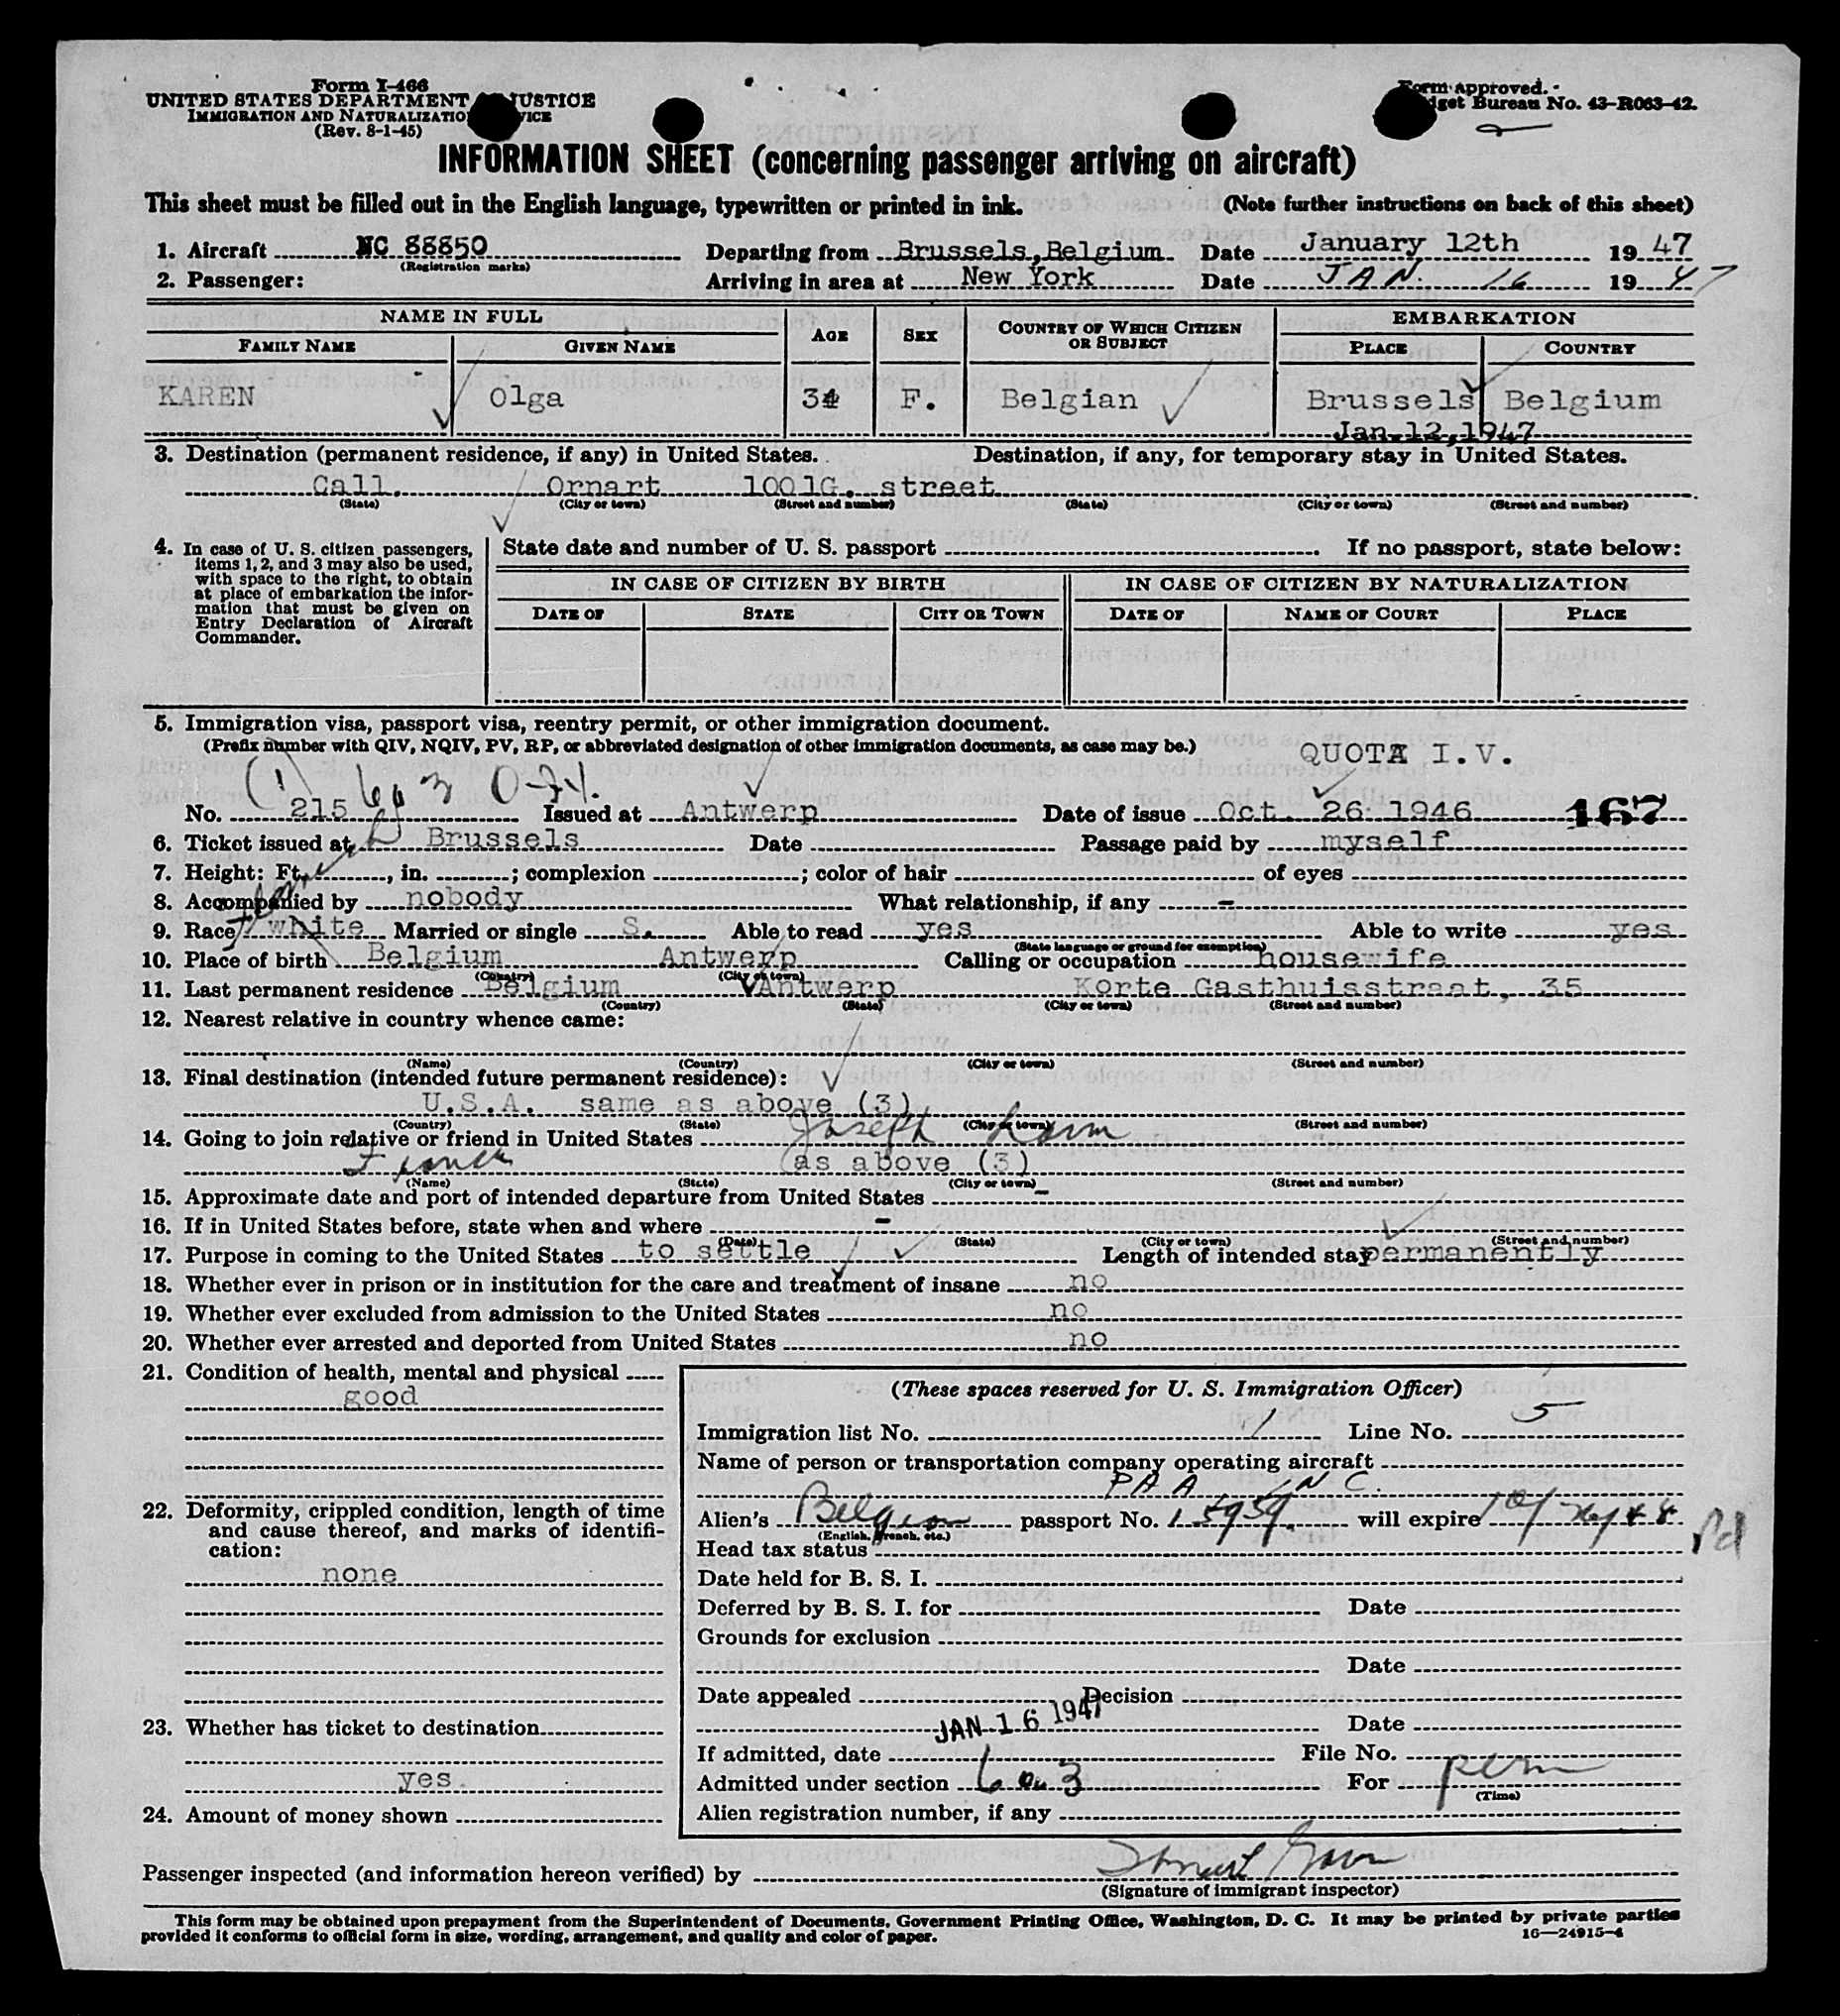 Form I-466
UNITED STATES DEPARTMENT JUSTICE
IMMIGRATION AND NATURALIZATIO VICE
(Rev. 8-1-45)
Form approved.
dget Bureau No. 43-R063-42.
INFORMATION SHEET (concerning passenger arriving on aircraft)
This sheet must be filled out in the English language, typewritten or printed in ink. (Note further instructions on back of this sheet)
1. Aircraft NC 88850 Departing from Brussels,Belgium Date January 12th 1947
(Registration marks)
2. Passenger: Arriving in area at New York Date JAN. 16 1947
NAME IN FULL AGE SEX COUNTRY OF WHICH CITIZEN OR SUBJECT EMBARKATION
FAMILY NAME GIVEN NAME PLACE COUNTRY
KAREN Olga 34 F. Belgian Brussels Belgium
Jan.12,1947
3. Destination (permanent residence, if any) in United States. Destination, if any, for temporary stay in United States.
Call. Ornart 1001G. street
(State) (City or town) (Street and number) (State) (City or town) (Street and number)
4. In case of U. S. citizen passengers, items 1, 2, and 3 may also be used, with space to the right, to obtain at place of embarkation the information that must be given on Entry Declaration of Aircraft Commander.
State date and number of U. S. passport. If no passport, state below:
IN CASE OF CITIZEN BY BIRTH IN CASE OF CITIZEN BY NATURALIZATION
DATE OF STATE CITY OR TOWN DATE OF NAME OF COURT PLACE
5. Immigration visa, passport visa, reentry permit, or other immigration document.
(Prefix number with QIV, NQIV, PV, RP, or abbreviated designation of other immigration documents, as case may be.)
QUOTA I.V.
(1)
No. 215 Issued at Antwerp Date of issue Oct. 26 1946 167
6. Ticket issued at Brussels Date Passage paid by myself
7. Height: Ft. , in. ; complexion ; color of hair of eyes
8. Accompanied by nobody What relationship, if any -
9. Race white Married or single S. Able to read yes Able to write yes
(State language or ground for exemption)
10. Place of birth Belgium Antwerp Calling or occupation housewife
(Country) (City or town)
11. Last permanent residence Belgium Antwerp Korte Gasthuisstraat, 35
(Country) (State) (City or town) (Street and number)
12. Nearest relative in country whence came:
(Name) (Country) (City or town) (Street and number)
13. Final destination (intended future permanent residence):
U.S.A. same as above (3)
(Country) (State) (City or town) (Street and number)
14. Going to join relative or friend in United States Joseph
as above (3)
(Name) (State) (City or town) (Street and number)
15. Approximate date and port of intended departure from United States -
16. If in United States before, state when and where -
(Date) (State) (City or town) (Street and number)
17. Purpose in coming to the United States to settle Length of intended stay permanently
18. Whether ever in prison or in institution for the care and treatment of insane no
19. Whether ever excluded from admission to the United States no
20. Whether ever arrested and deported from United States no
21. Condition of health, mental and physical
good
22. Deformity, crippled condition, length of time and cause thereof, and marks of identification:
none
23. Whether has ticket to destination
yes.
24. Amount of money shown
(These spaces reserved for U. S. Immigration Officer)
Immigration list No. 1 Line No. 5
Name of person or transportation company operating aircraft
PAA INC.
Alien's Belgian passport No. will expire
(English, French, etc.)
Head tax status
Date held for B. S. I.
Deferred by B. S. I. for Date
Grounds for exclusion
Date
Date appealed Decision
JAN 16 1947 Date
If admitted, date File No.
Admitted under section 6 a 3 For perm
(Time)
Alien registration number, if any
Passenger inspected (and information hereon verified) by
(Signature of immigrant inspector)
This form may be obtained upon prepayment from the Superintendent of Documents, Government Printing Office, Washington, D. C. It may be printed by private parties
provided it conforms to official form in size, wording, arrangement, and quality and color of paper. 16—24915-4